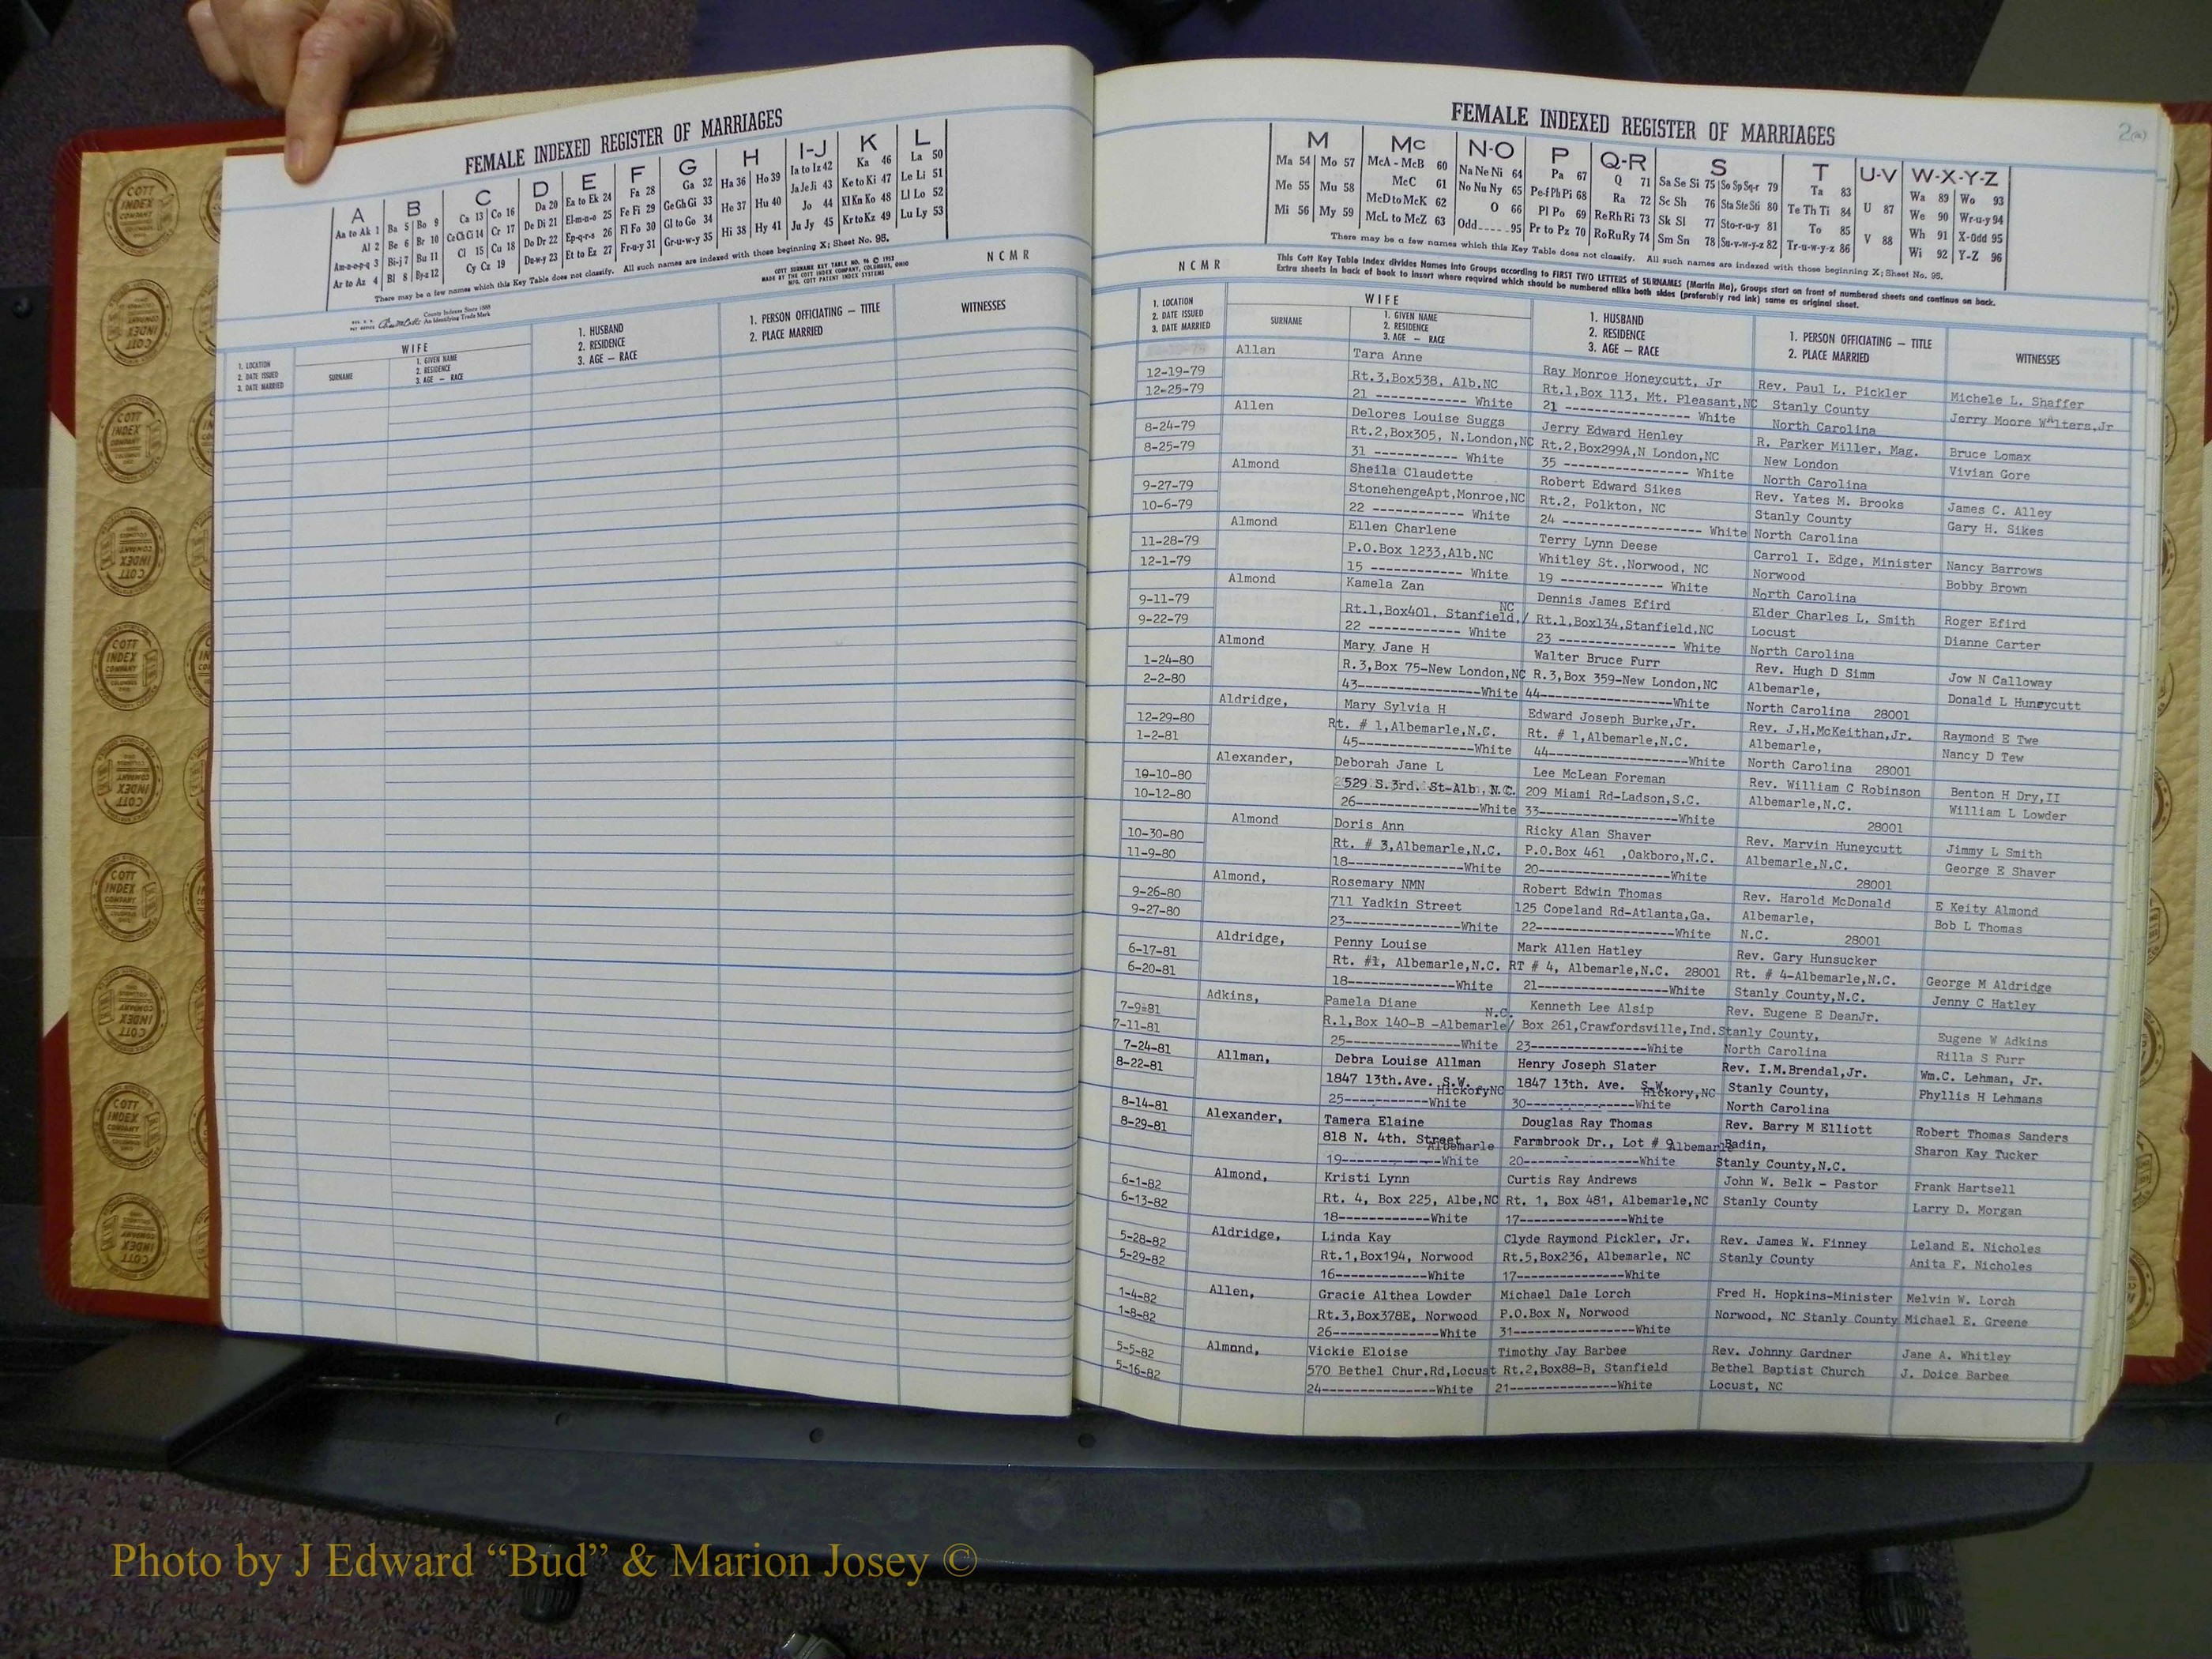 FEMALE INDEXED REGISTER OF MARRIAGES
A B C D E F G H I-J K L
Aa to Ak 1 Ba 5 Bo 9 Ca 13 Co 16 Da 20 Ea to Ek 24 Fa 28 Ga 32 Ha 36 Ho 39 Ia to Iz 42 Ka 46 La 50
Al 2 Be 6 Br 10 Ce Ch Ci 14 Cr 17 De Di 21 El-m-n-o 25 Fe Fi 29 Ge Gh Gi 33 He 37 Hu 40 Ja Je Ji 43 Ke to Ki 47 Le Li 51
Am-n-o-p-q 3 Bi-j 7 Bu 11 Cl 15 Cu 18 Do Dr 22 Ep-q-r-s 26 Fl Fo 30 Gl to Go 34 Hi 38 Hy 41 Jo 44 Kl Kn Ko 48 Ll Lo 52
Ar to Az 4 Bl 8 By-z 12 Cy Cz 19 Du-w-y 23 Et to Ez 27 Fr-u-y 31 Gr-u-w-y 35 Ju Jy 45 Kr to Kz 49 Lu Ly 53
There may be a few names which this Key Table does not classify. All such names are indexed with those beginning X; Sheet No. 95.
County Indexes Since 1888
An Identifying Trade Mark
COTT SURNAME KEY TABLE NO. 96 © 1953
MADE BY THE COTT INDEX COMPANY, COLUMBUS, OHIO
MFG. COTT PATENT INDEX SYSTEMS
NCMR
1. LOCATION
2. DATE ISSUED
3. DATE MARRIED
WIFE
SURNAME
1. GIVEN NAME
2. RESIDENCE
3. AGE — RACE
1. HUSBAND
2. RESIDENCE
3. AGE — RACE
1. PERSON OFFICIATING — TITLE
2. PLACE MARRIED
WITNESSES
COTT INDEX COMPANY
FEMALE INDEXED REGISTER OF MARRIAGES
2(a)
M Mc N-O P Q-R S T U-V W-X-Y-Z
Ma 54 Mo 57 McA - McB 60 Na Ne Ni 64 Pa 67 Q 71 Sa Se Si 75 So Sp Sq-r 79 Ta 83 U 87 Wa 89 Wo 93
Me 55 Mu 58 McC 61 No Nu Ny 65 Pe-f Ph Pi 68 Ra 72 Sc Sh 76 Sta Ste Sti 80 Te Th Ti 84 V 88 We 90 Wr-u-y 94
Mi 56 My 59 McD to McK 62 O 66 Pl Po 69 Re Rh Ri 73 Sk Sl 77 Sto-r-u-y 81 To 85 Wh 91 X-Odd 95
McL to McZ 63 Odd 95 Pr to Pz 70 Ro Ru Ry 74 Sm Sn 78 Su-v-w-y-z 82 Tr-u-w-y-z 86 Wi 92 Y-Z 96
There may be a few names which this Key Table does not classify. All such names are indexed with those beginning X; Sheet No. 95.
NCMR
This Cott Key Table Index divides Names into Groups according to FIRST TWO LETTERS of SURNAMES (Martin Ma), Groups start on front of numbered sheets and continue on back.
Extra sheets in back of book to insert where required which should be numbered alike both sides (preferably red ink) same as original sheet.
1. LOCATION
2. DATE ISSUED
3. DATE MARRIED
WIFE
SURNAME
1. GIVEN NAME
2. RESIDENCE
3. AGE — RACE
1. HUSBAND
2. RESIDENCE
3. AGE — RACE
1. PERSON OFFICIATING — TITLE
2. PLACE MARRIED
WITNESSES
Allan Tara Anne Ray Monroe Honeycutt, Jr Rev. Paul L. Pickler Michele L. Shaffer
12-19-79 Rt.3,Box538, Alb.NC Rt.1,Box 113, Mt. Pleasant,NC Stanly County Jerry Moore Walters,Jr
12-25-79 21 ------------ White 21 ---------------- White North Carolina
Allen Delores Louise Suggs Jerry Edward Henley R. Parker Miller, Mag. Bruce Lomax
8-24-79 Rt.2,Box305, N.London,NC Rt.2,Box299A,N London,NC New London Vivian Gore
8-25-79 31 ----------- White 35 ---------------- White North Carolina
Almond Sheila Claudette Robert Edward Sikes Rev. Yates M. Brooks James C. Alley
9-27-79 StonehengeApt,Monroe,NC Rt.2, Polkton, NC Stanly County Gary H. Sikes
10-6-79 22 ------------ White 24 ------------------ White North Carolina
Almond Ellen Charlene Terry Lynn Deese Carrol I. Edge, Minister Nancy Barrows
11-28-79 P.O.Box 1233,Alb.NC Whitley St.,Norwood, NC Norwood Bobby Brown
12-1-79 15 ------------ White 19 ------------- White North Carolina
Almond Kamela Zan Dennis James Efird Elder Charles L. Smith Roger Efird
9-11-79 Rt.1,Box401, Stanfield,/ NC Rt.1,Box134,Stanfield,NC Locust Dianne Carter
9-22-79 22 ------------ White 23 ------------- White North Carolina
Almond Mary Jane H Walter Bruce Furr Rev. Hugh D Simm Jow N Calloway
1-24-80 R.3,Box 75-New London,NC R.3,Box 359-New London,NC Albemarle, Donald L Huneycutt
2-2-80 43---------------White 44---------------White North Carolina 28001
Aldridge, Mary Sylvia H Edward Joseph Burke,Jr. Rev. J.H.McKeithan,Jr. Raymond E Twe
12-29-80 Rt. # 1,Albemarle,N.C. Rt. # 1,Albemarle,N.C. Albemarle, Nancy D Tew
1-2-81 45---------------White 44----------------White North Carolina 28001
Alexander, Deborah Jane L Lee McLean Foreman Rev. William C Robinson Benton H Dry,II
10-10-80 529 S.3rd. St-Alb, N.C. 209 Miami Rd-Ladson,S.C. Albemarle,N.C. William L Lowder
10-12-80 26----------------White 33------------------White 28001
Almond Doris Ann Ricky Alan Shaver Rev. Marvin Huneycutt Jimmy L Smith
10-30-80 Rt. # 3,Albemarle,N.C. P.O.Box 461 ,Oakboro,N.C. Albemarle,N.C. George E Shaver
11-9-80 18---------------White 20-----------------White 28001
Almond, Rosemary NMN Robert Edwin Thomas Rev. Harold McDonald E Keity Almond
9-26-80 711 Yadkin Street 125 Copeland Rd-Atlanta,Ga. Albemarle, Bob L Thomas
9-27-80 23---------------White 22------------------White N.C. 28001
Aldridge, Penny Louise Mark Allen Hatley Rev. Gary Hunsucker George M Aldridge
6-17-81 Rt. #1, Albemarle,N.C. RT # 4, Albemarle,N.C. 28001 Rt. # 4-Albemarle,N.C. Jenny C Hatley
6-20-81 18--------------White 21-----------------White Stanly County,N.C.
Adkins, Pamela Diane Kenneth Lee Alsip Rev. Eugene E DeanJr. Eugene W Adkins
7-9-81 R.1,Box 140-B -Albemarle/ N.C. Box 261,Crawfordsville,Ind. Stanly County, Rilla S Furr
7-11-81 25---------------White 23----------------White North Carolina
Allman, Debra Louise Allman Henry Joseph Slater Rev. I.M.Brendal,Jr. Wm.C. Lehman, Jr.
7-24-81 1847 13th.Ave. S.W. HickoryNC 1847 13th. Ave. S.W. Hickory,NC Stanly County, Phyllis H Lehmans
8-22-81 25-----------White 30---------------White North Carolina
Alexander, Tamera Elaine Douglas Ray Thomas Rev. Barry M Elliott Robert Thomas Sanders
8-14-81 818 N. 4th. Street Albemarle Farmbrook Dr., Lot # 9 Albemarle Badin, Sharon Kay Tucker
8-29-81 19-------------White 20---------------White Stanly County,N.C.
Almond, Kristi Lynn Curtis Ray Andrews John W. Belk - Pastor Frank Hartsell
6-1-82 Rt. 4, Box 225, Albe,NC Rt. 1, Box 481, Albemarle,NC Stanly County Larry D. Morgan
6-13-82 18------------White 17---------------White
Aldridge, Linda Kay Clyde Raymond Pickler, Jr. Rev. James W. Finney Leland E. Nicholes
5-28-82 Rt.1,Box194, Norwood Rt.5,Box236, Albemarle, NC Stanly County Anita F. Nicholes
5-29-82 16------------White 17---------------White
Allen, Gracie Althea Lowder Michael Dale Lorch Fred H. Hopkins-Minister Melvin W. Lorch
1-4-82 Rt.3,Box378E, Norwood P.O.Box N, Norwood Norwood, NC Stanly County Michael E. Greene
1-8-82 26---------------White 31-----------------White
Almond, Vickie Eloise Timothy Jay Barbee Rev. Johnny Gardner Jane A. Whitley
5-5-82 570 Bethel Chur.Rd,Locust Rt.2,Box88-B, Stanfield Bethel Baptist Church J. Doice Barbee
5-16-82 24----------------White 21---------------White Locust, NC
Photo by J Edward “Bud” & Marion Josey ©